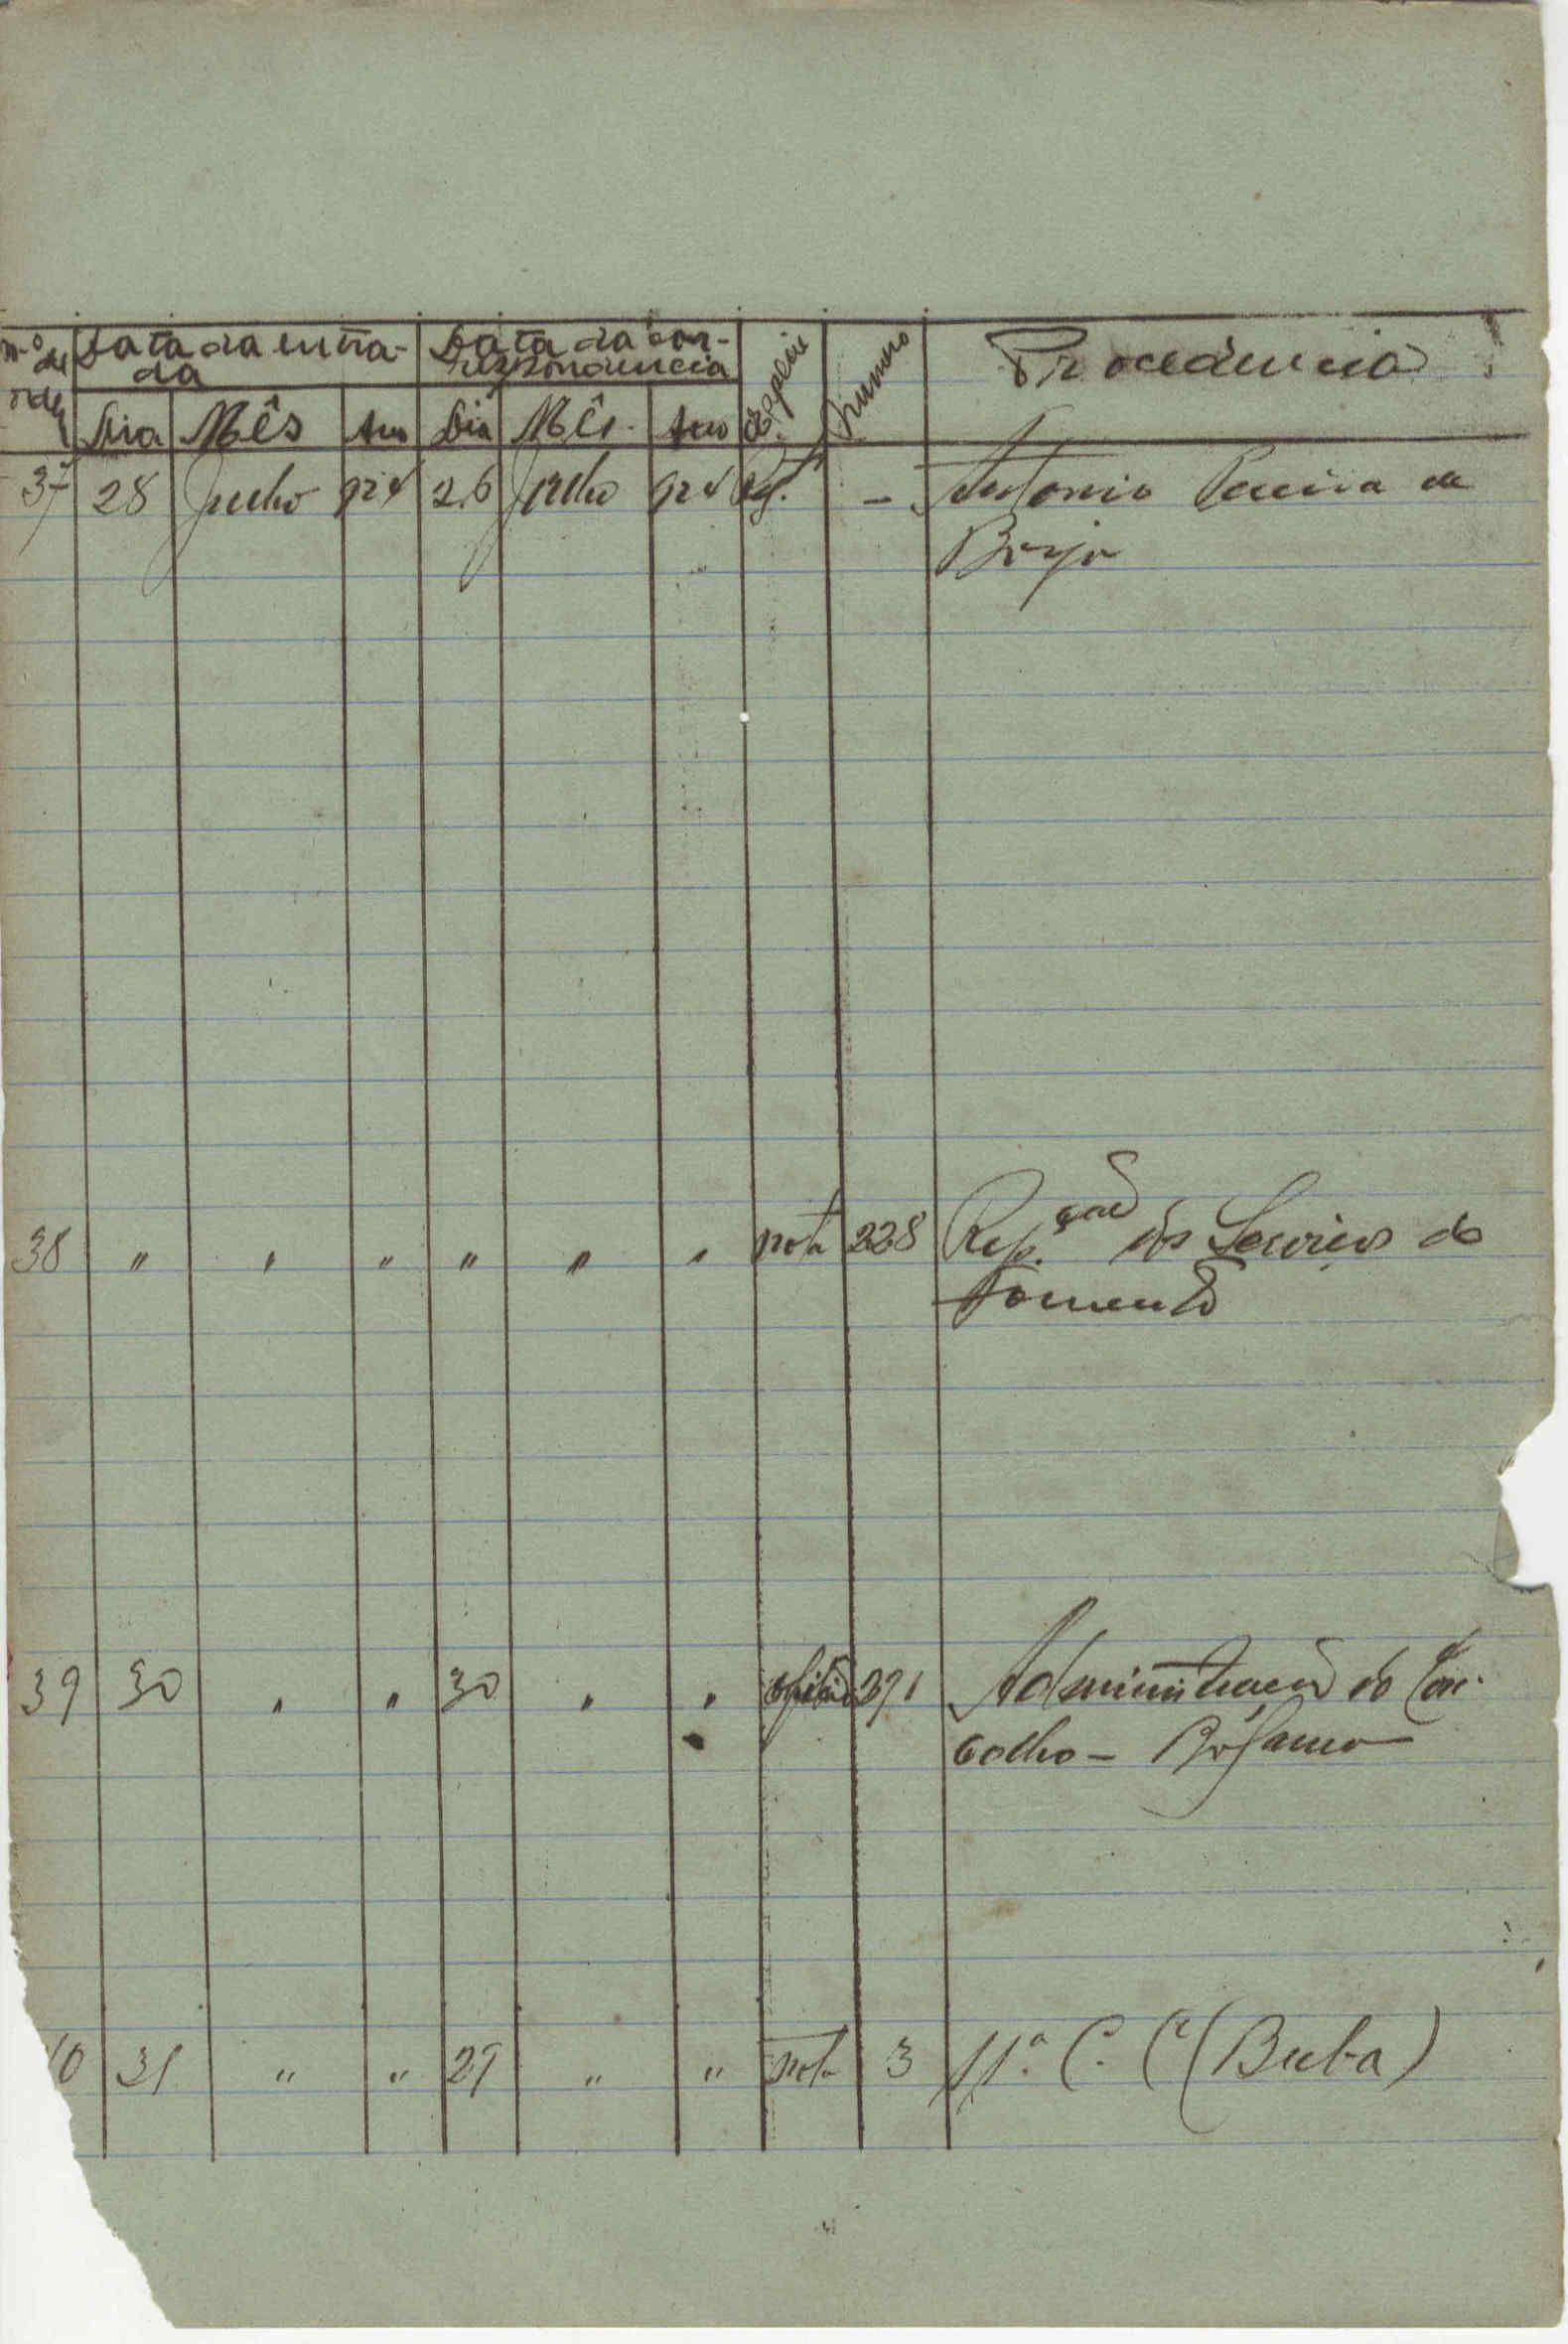 N.º de ordem Data da entrada Data da correspondencia Especie Numero Procedencia
Dia Mês Ano Dia Mês Ano
37 28 Julho 924 26 Julho 924 – Antonio Pereira de
Borja
38 " " " " " " nota 228 Rep.ção dos Serviços do
Fomento
39 30 " " 30 " " oficio 391 Administração do Con-
celho – Bolama
40 31 " " 29 " " nota 3 11.ª C. C (Buba)